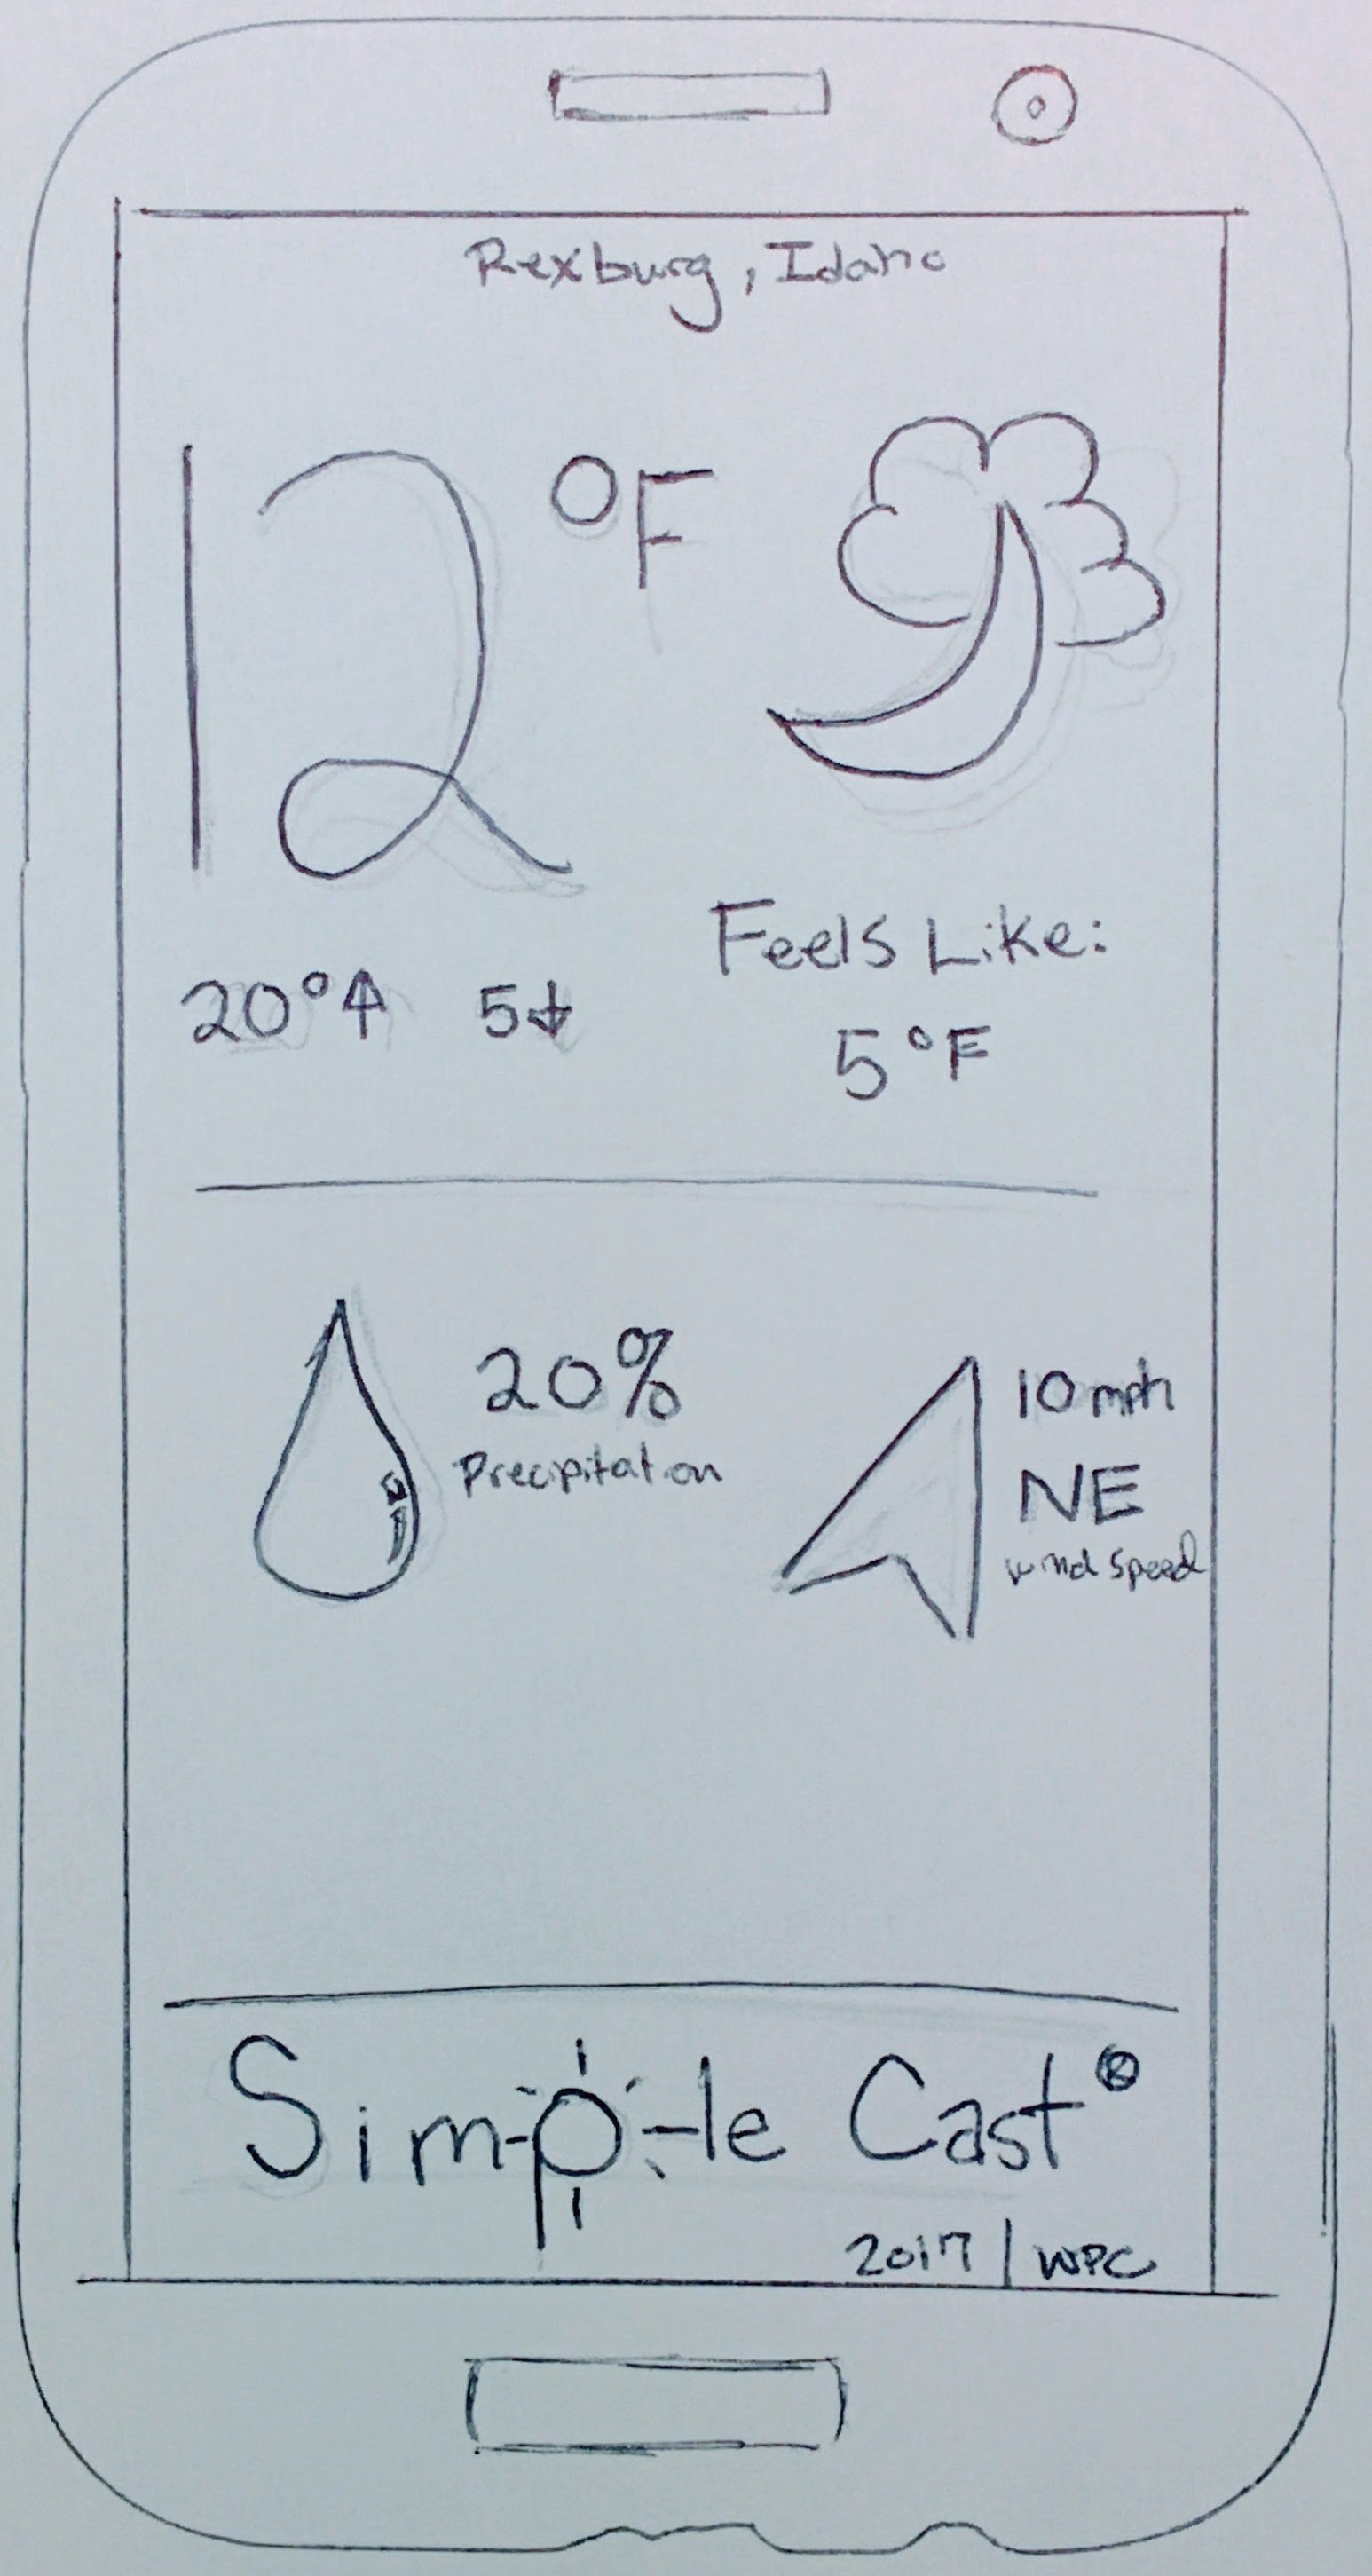 Rexburg, Idaho
12 °F
20°↑ 5↓
Feels Like:
5°F
20%
Precipitation
10 mph
NE
wind speed
Simple Cast®
2017 | WPC